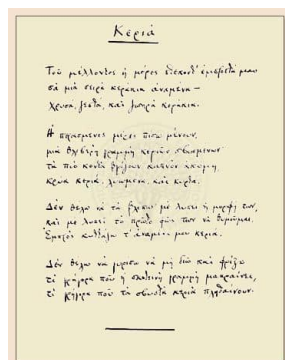 Κεριά
Τοῦ μέλλοντος ἡ μέρες στέκοντ' ἐμπροστά μας
σὰ μιὰ σειρὰ κεράκια ἀναμένα —
χρυσά, ζεστά, καὶ ζωηρὰ κεράκια.
Ἡ περασμένες μέρες πίσω μένουν,
μιὰ θλιβερὴ γραμμὴ κεριῶν σβυσμένων·
τὰ πιὸ κοντὰ βγάζουν καπνὸν ἀκόμη,
κρύα κεριά, λυωμένα, καὶ κυρτά.
Δὲν θέλω νὰ τὰ βλέπω· μὲ λυπεῖ ἡ μορφή των,
καὶ μὲ λυπεῖ τὸ πρῶτο φῶς των νὰ θυμοῦμαι.
Ἐμπρὸς κυττάζω τ' ἀναμένα μου κεριά.
Δὲν θέλω νὰ γυρίσω νὰ μὴ διῶ καὶ φρίξω
τί γρήγορα ποὺ ἡ σκοτεινὴ γραμμὴ μακραίνει,
τί γρήγορα ποὺ τὰ σβυστὰ κεριὰ πληθαίνουν.